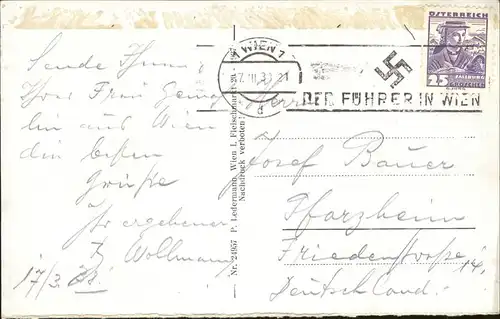 WIEN 1
DER FÜHRER IN WIEN
ÖSTERREICH
25
SALZBURG
GROSCHEN
Sende Ihnen,
Ihrer Frau
aus Wien
die besten
Grüße
Ihr ergebener
Wollmann
17/3. 38.
Nr. 24957 P. Ledermann, Wien I, Fleischmarkt
Nachdruck verboten!
Herrn
Josef Bauer
Pforzheim
Friedenstrasse 14.
Deutschland.